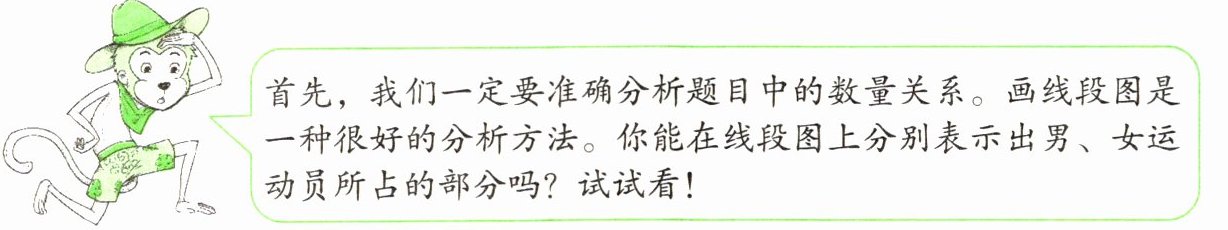 首先，我们一定要准确分析题目中的数量关系。画线段图是
一种很好的分析方法。你能在线段图上分别表示出男、女运
动员所占的部分吗？试试看！